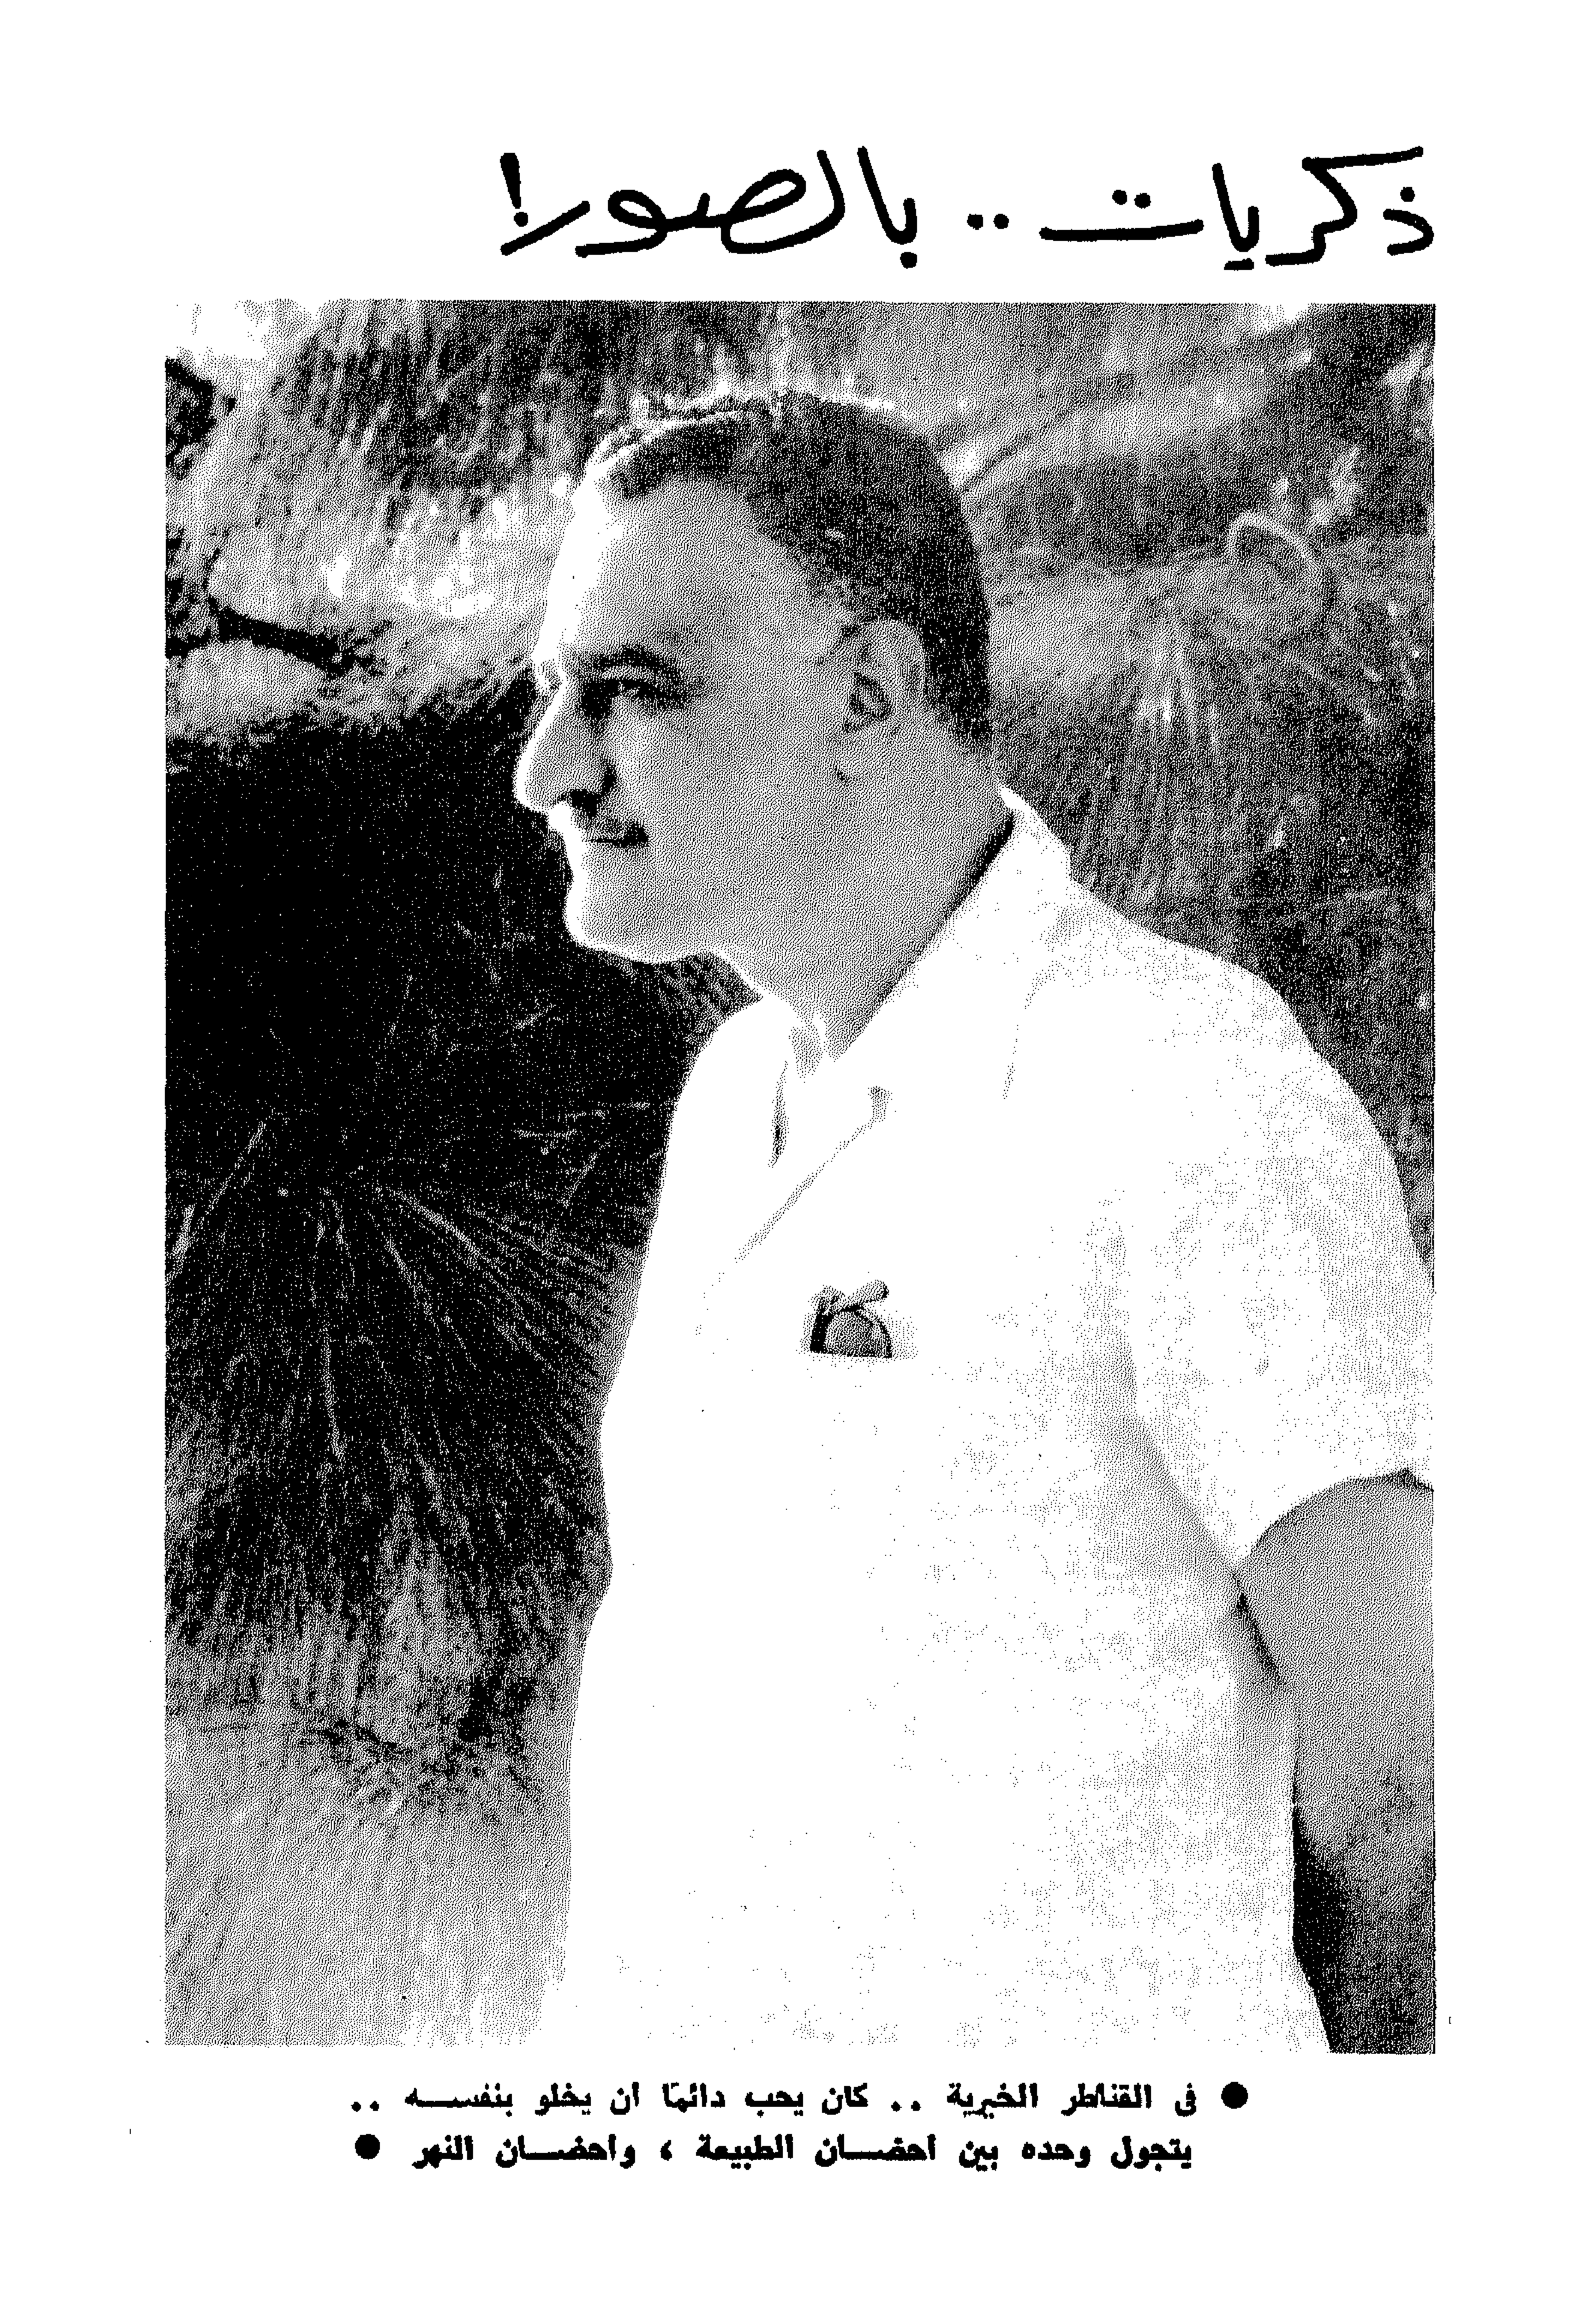 ذكريات .. بالصور!
● فى القناطر الخيرية .. كان يحب دائمًا أن يخلو بنفســه ..
يتجول وحده بين أحضــان الطبيعة ، وأحضــان النهر ●